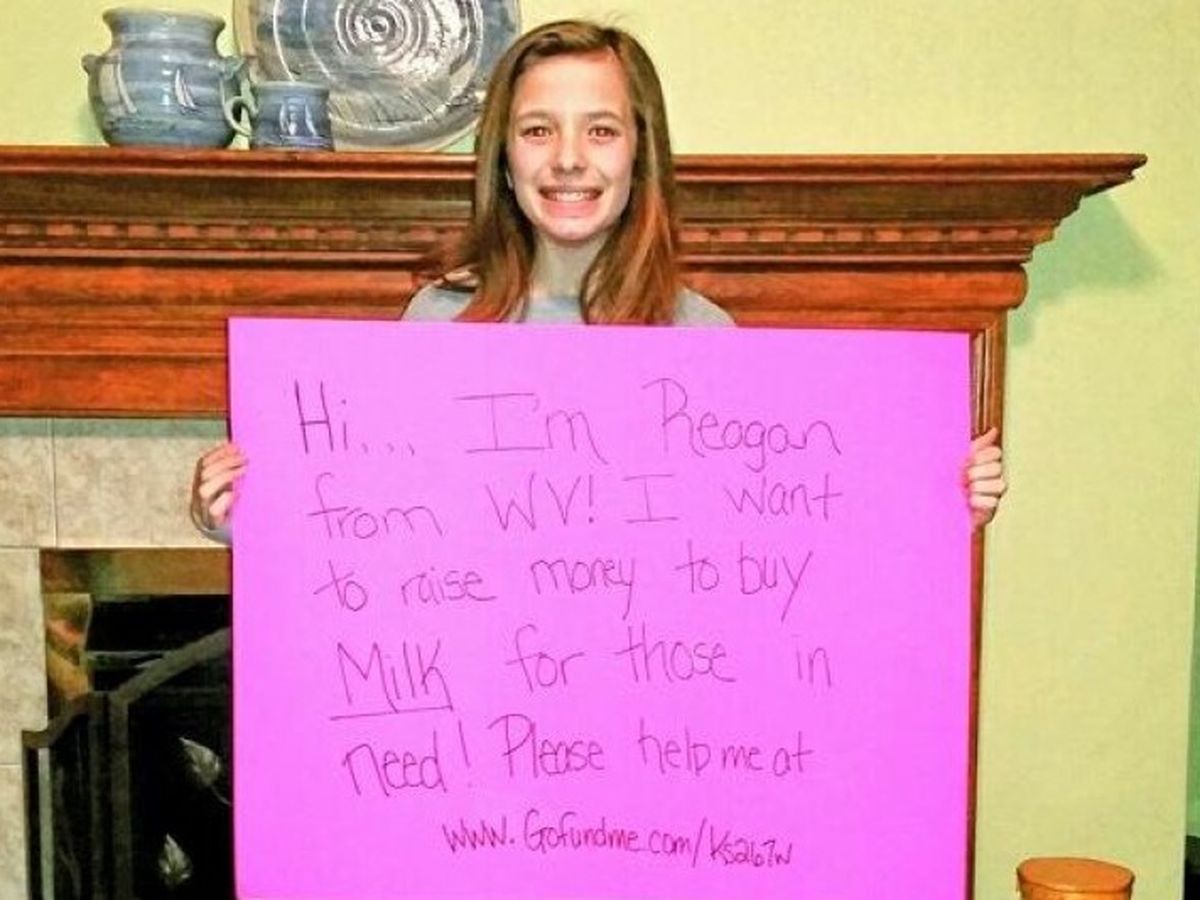 Hi... I'm Reagan
from WV! I want
to raise money to buy
Milk for those in
need! Please help me at
www.Gofundme.com/Ks267w